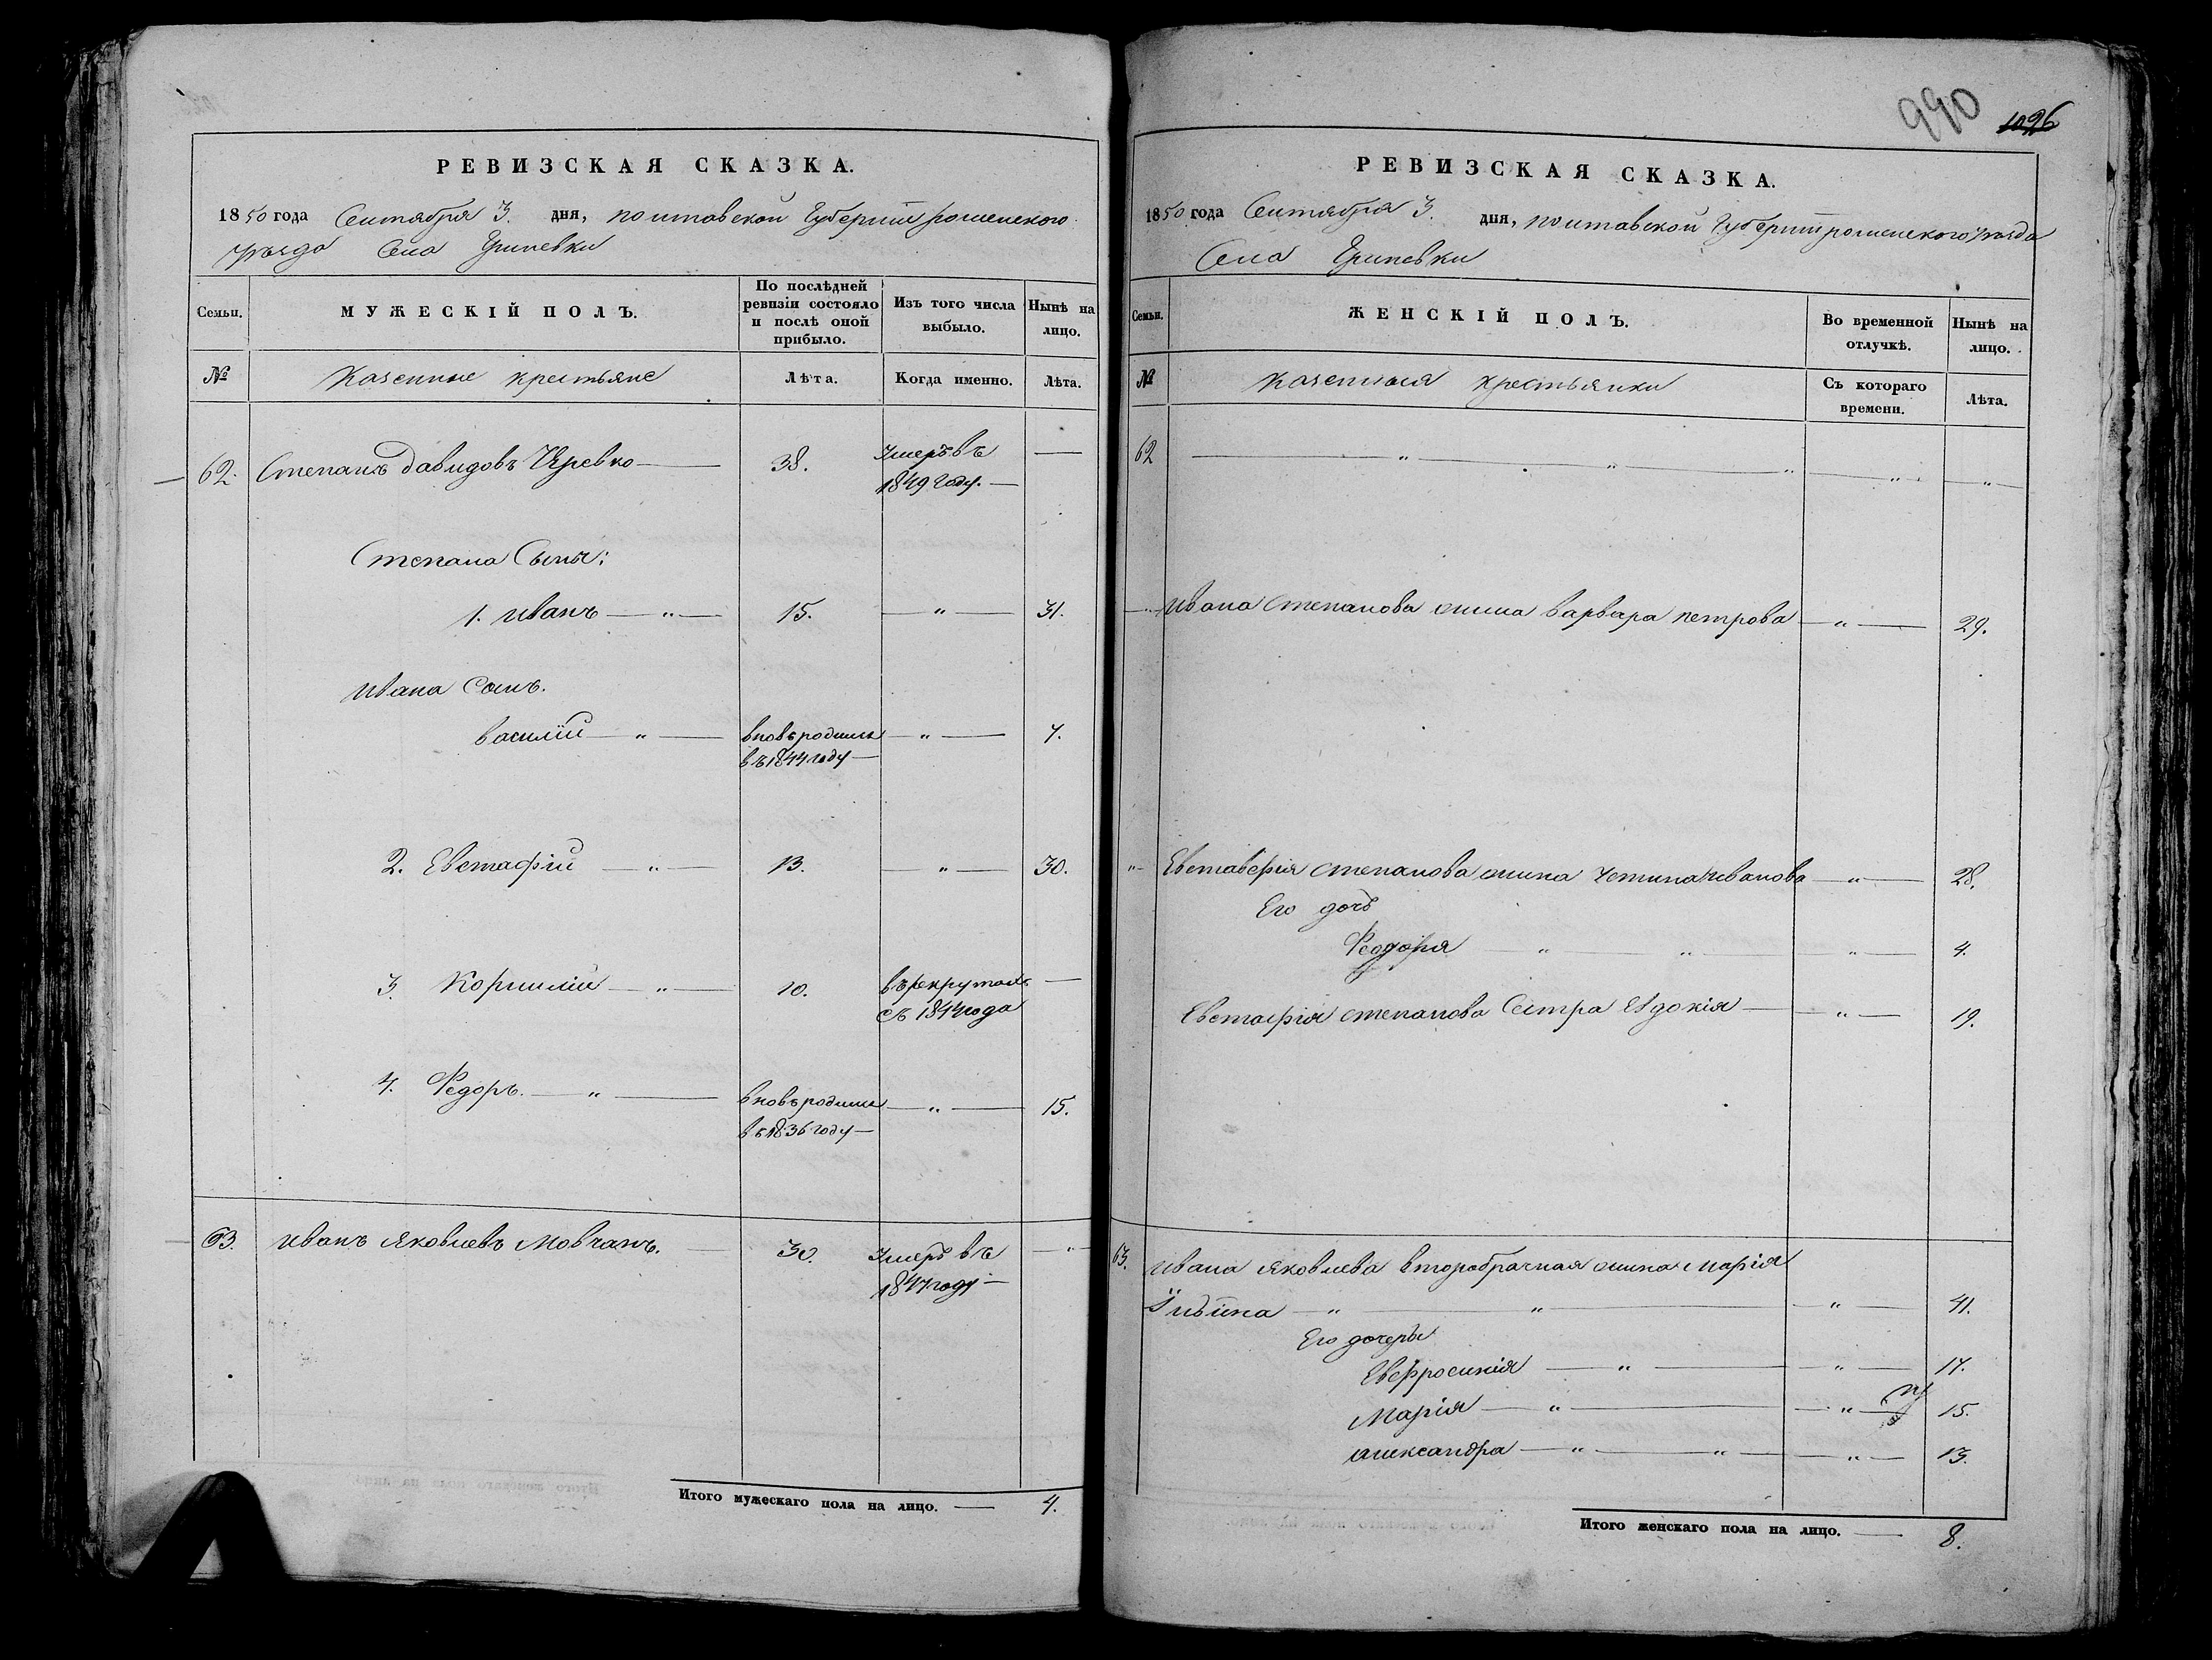 990 1026
РЕВИЗСКАЯ СКАЗКА.
1850 года Сентября 3. дня, полтавской Губерніи роменского
уезда Села Гриневки
Семьи.
МУЖЕСКІЙ ПОЛЪ.
По послѣдней
ревизіи состояло
и послѣ оной
прибыло.
Изъ того числа
выбыло.
Нынѣ на
лицо.
№
Казенные крестьяне
Лѣта.
Когда именно.
Лѣта.
62. Степанъ Давидовъ 38. Умеръ въ —
1849 году. —
Степана Сыны:
1. Иванъ — " — 15. — " — 31.
Ивана Сынъ.
василій — " — вновь родился — " — 7.
въ 1844 году —
2. Евстафій — " — 13. — " — 30.
3. Корнилій — " — 10. въ рекрутахъ —
съ 1844 года
4. Федоръ. — " — вновь родился — " — 15.
въ 1836 году —
63. Иванъ Яковлевъ Мовчанъ. 30. Умеръ въ — "
1847 году —
Итого мужескаго пола на лицо. — 4.
РЕВИЗСКАЯ СКАЗКА.
1850 года Сентября 3. дня, полтавской Губерніи роменского уезда
Села Гриневки
Семьи.
ЖЕНСКІЙ ПОЛЪ.
Во временной
отлучкѣ.
Нынѣ на
лицо.
№
Казенныя крестьянки
Съ котораго
времени.
Лѣта.
62 — " — " — " — " — "
— " Ивана Степанова жина варвара петрова — " — 29.
" Евставефія степанова жина Иванова — " — 28.
Его дочь
Федора " " — " — 4.
Евстафія степанова Сестра Евдокія — " — 19.
63. Ивана Яковлева второбрачная жина Марія
— " — " — " — 41.
Его дочеры
Евфросинія — " — " — 17.
Марія — " — " — 15.
александра — " — " — " — 13.
Итого женскаго пола на лицо. — 8.